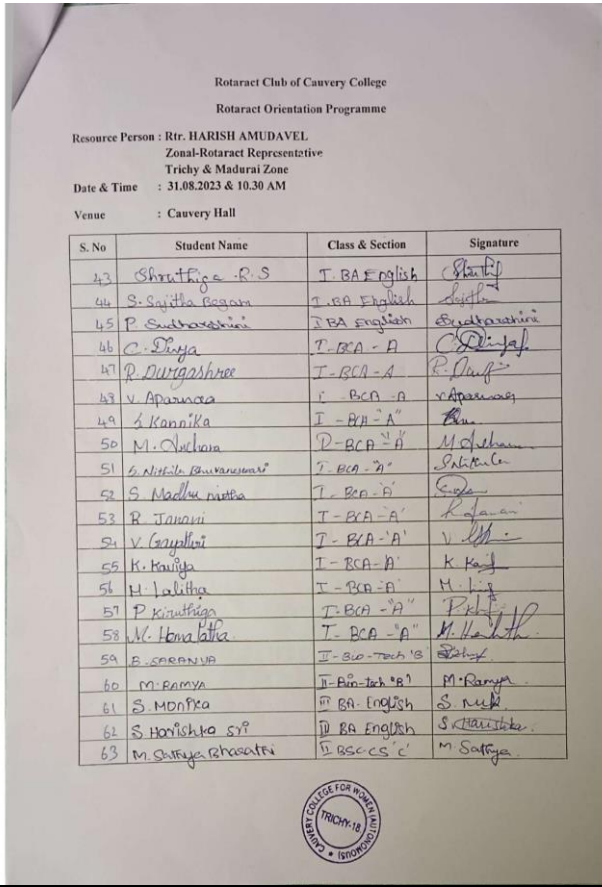 Rotaract Club of Cauvery College
Rotaract Orientation Programme
Resource Person : Rtr. HARISH AMUDAVEL
Zonal-Rotaract Representative
Trichy & Madurai Zone
Date & Time : 31.08.2023 & 10.30 AM
Venue : Cauvery Hall
S. No Student Name Class & Section Signature
43 Shruthiga .R.S I. BA English
44 S. Sajitha Begam I. BA English
45 P. Sudharshini I BA English Sudharshini
46 C. Divya I-BCA - A
47 R. Durgashree I-BCA-A
48 V. Aparnaa I -BCA -A V.Aparnaa
49 S Kannika I - BCA-"A"
50 M. -BCA "A"
51 S. Nithila Bhuvaneswari I. BCA-"A"
52 S. Madhu mitha I - BCA-'A'
53 R. Janani I - BCA-'A' R. Janani
54 V. Gayathri I - BCA-'A'
55 K. Kaviya I - BCA-'A'
56 M. Lalitha I - BCA-'A'
57 P Kiruthiga I-BCA -"A"
58 M. Hema latha I- BCA -"A"
59 B. SARANYA II-Bio-Tech 'B'
60 M.RAMYA II-Bio-tech "B" M.Ramya
61 S. Monica III BA. English
62 S Harishka Sri BA English S. Harishka
63 M. Sathya Bharathi II BSC-CS 'C' M. Sathya
CAUVERY COLLEGE FOR WOMEN (AUTONOMOUS)
TRICHY-18.